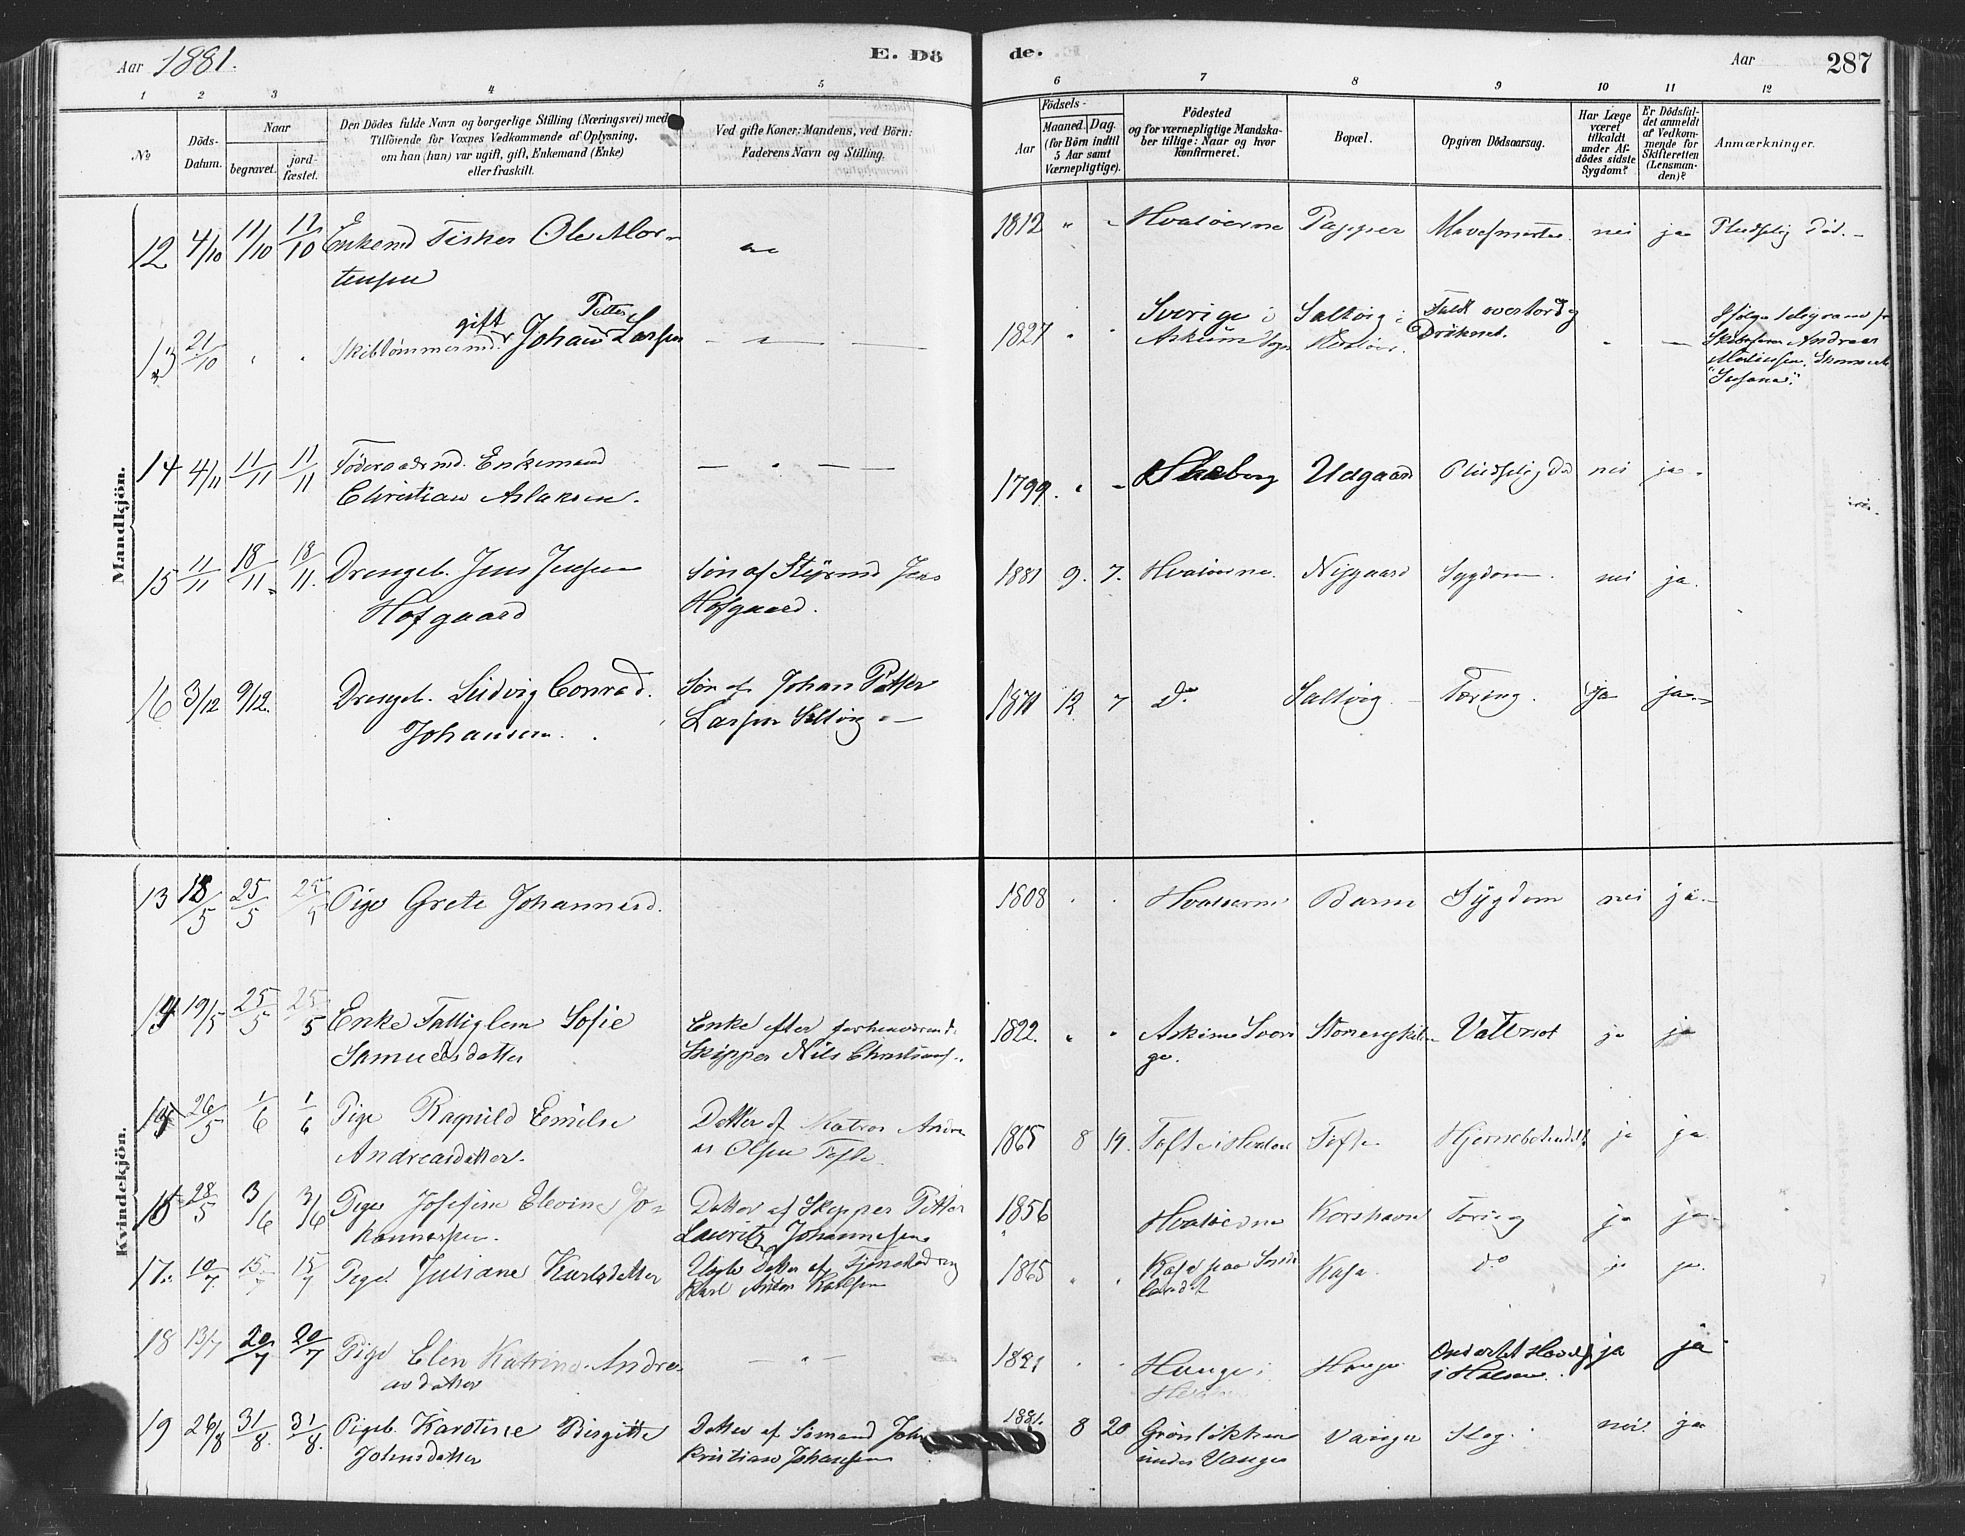 Aar 1881. E. Dö de. Aar 287
1 2 3 4 5 6 7 8 9 10 11 12
No
Döds-
Datum.
Naar
begravet.
jord-
fæstet.
Den Dödes fulde Navn og borgerlige Stilling (Næringsvei) med
Tilföiende for Voxnes Vedkommende af Oplysning,
om han (hun) var ugift, gift, Enkemand (Enke)
eller fraskilt.
Ved gifte Koner: Mandens, ved Börn:
Faderens Navn og Stilling.
Födsels-
Aar
Maaned. Dag.
(for Börn indtil
5 Aar samt
Værnepligtige).
Födested
og for værnepligtige Mandska-
ber tillige: Naar og hvor
konfirmeret.
Bopæl.
Opgiven Dödsaarsag.
Har Læge
været
tilkaldt
under Af-
dödes sidste
Sygdom?
Er Dödsfal-
det anmeldt
af Vedkom-
mende for
Skifteretten
(Lensman-
den)?
Anmærkninger.
Mandkjön.
12 4/10 11/10 11/10 Enkemd Fisker Ole Mor-
tensen
1812 " " Hvaløerne Papper Mavesmerter nei ja Pludselig Död.
13 21/10 " " Skibtømmermd. gift Johan Petter Larsen
1827 " Sverige i Saltvig i Faldt overbord og
Askum Sogn Hvaløer. Druknet.
Ifølge telegram fr
Skibsfører Andreas
Martinsen. Skonnert
"Susanna".
14 4/11 11/11 11/11 Föderaadsmd. Enkemand
Christian Aslaksen.
1799. " " Skeberg Udgaard Pludselig Død nei ja.
15 11/11 18/11. 18/11. Drengeb. Jens Jensen
Hofgaard
Søn af Styrmd Jens
Hofgaard.
1881 9. 7. Hvaløerne. Nygaard Sygdom. nei ja.
16 3/12 9/12. Drengeb. Ludvig Conrad.
Johansen.
Søn af Johan Petter
Larsen Saltvig
1871 12 7 Do Saltvig. Tæring. ja ja.
Kvindekjön.
13 18/5 25/5 25/5 Pige Grete Johannesd.
1808 " " Hvaløerne Barm Sygdom nei ja.
14 19/5 25/5 25/5 Enke Fattiglem Sofie
Samuelsdatter
Enke efter forhenværend.
Skipper Nils Christians.
1822. " " Askim Sveri
ge. Vattersot ja ja
15 26/5 1/6 1/6 Pige Ragnild Emilie
Andreasdatter.
Datter af Matros Andre
as Olsen Tofte.
1865 8 19. Tofte i Hvaløer Tofte ja ja
28/5 3/6 3/6 Pige Josefine Elevine Jo-
hannesen.
Datter af Skipper Petter
Lauritz Johannesen
1856 Hvaløerne Korshavn Tæring ja ja
17. 10/7. 15/7 15/7 Pige. Juliane Karlsdatter
Uegte Datter af
Karl Anton Karlsen
1865 " " Kasa paa Spjær
landet Kasa. do ja ja
18 13/7 20/7 20/7 Pige Elen Katrine Andre-
asdatter
" " Hauge i Hauge ja ja
i Halsen.
19 26/8 31/8. 31/8. Pigeb. Karoline Birgitte
Johnsdatter
Datter af Sømand John
Kristian Johansen
1881. 8 20 Grønløkken
under Vauger Vauger Slag. nei. ja